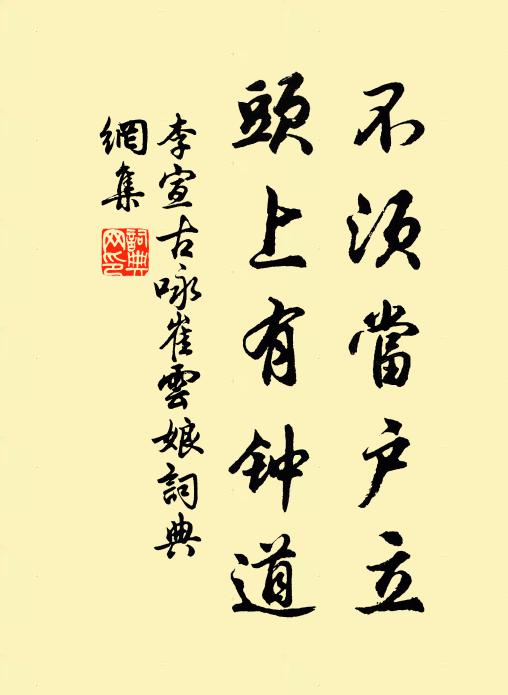 不须當户立
頭上有钟道
李宣古咏崔雲娘詞典
網集
詞典
网印